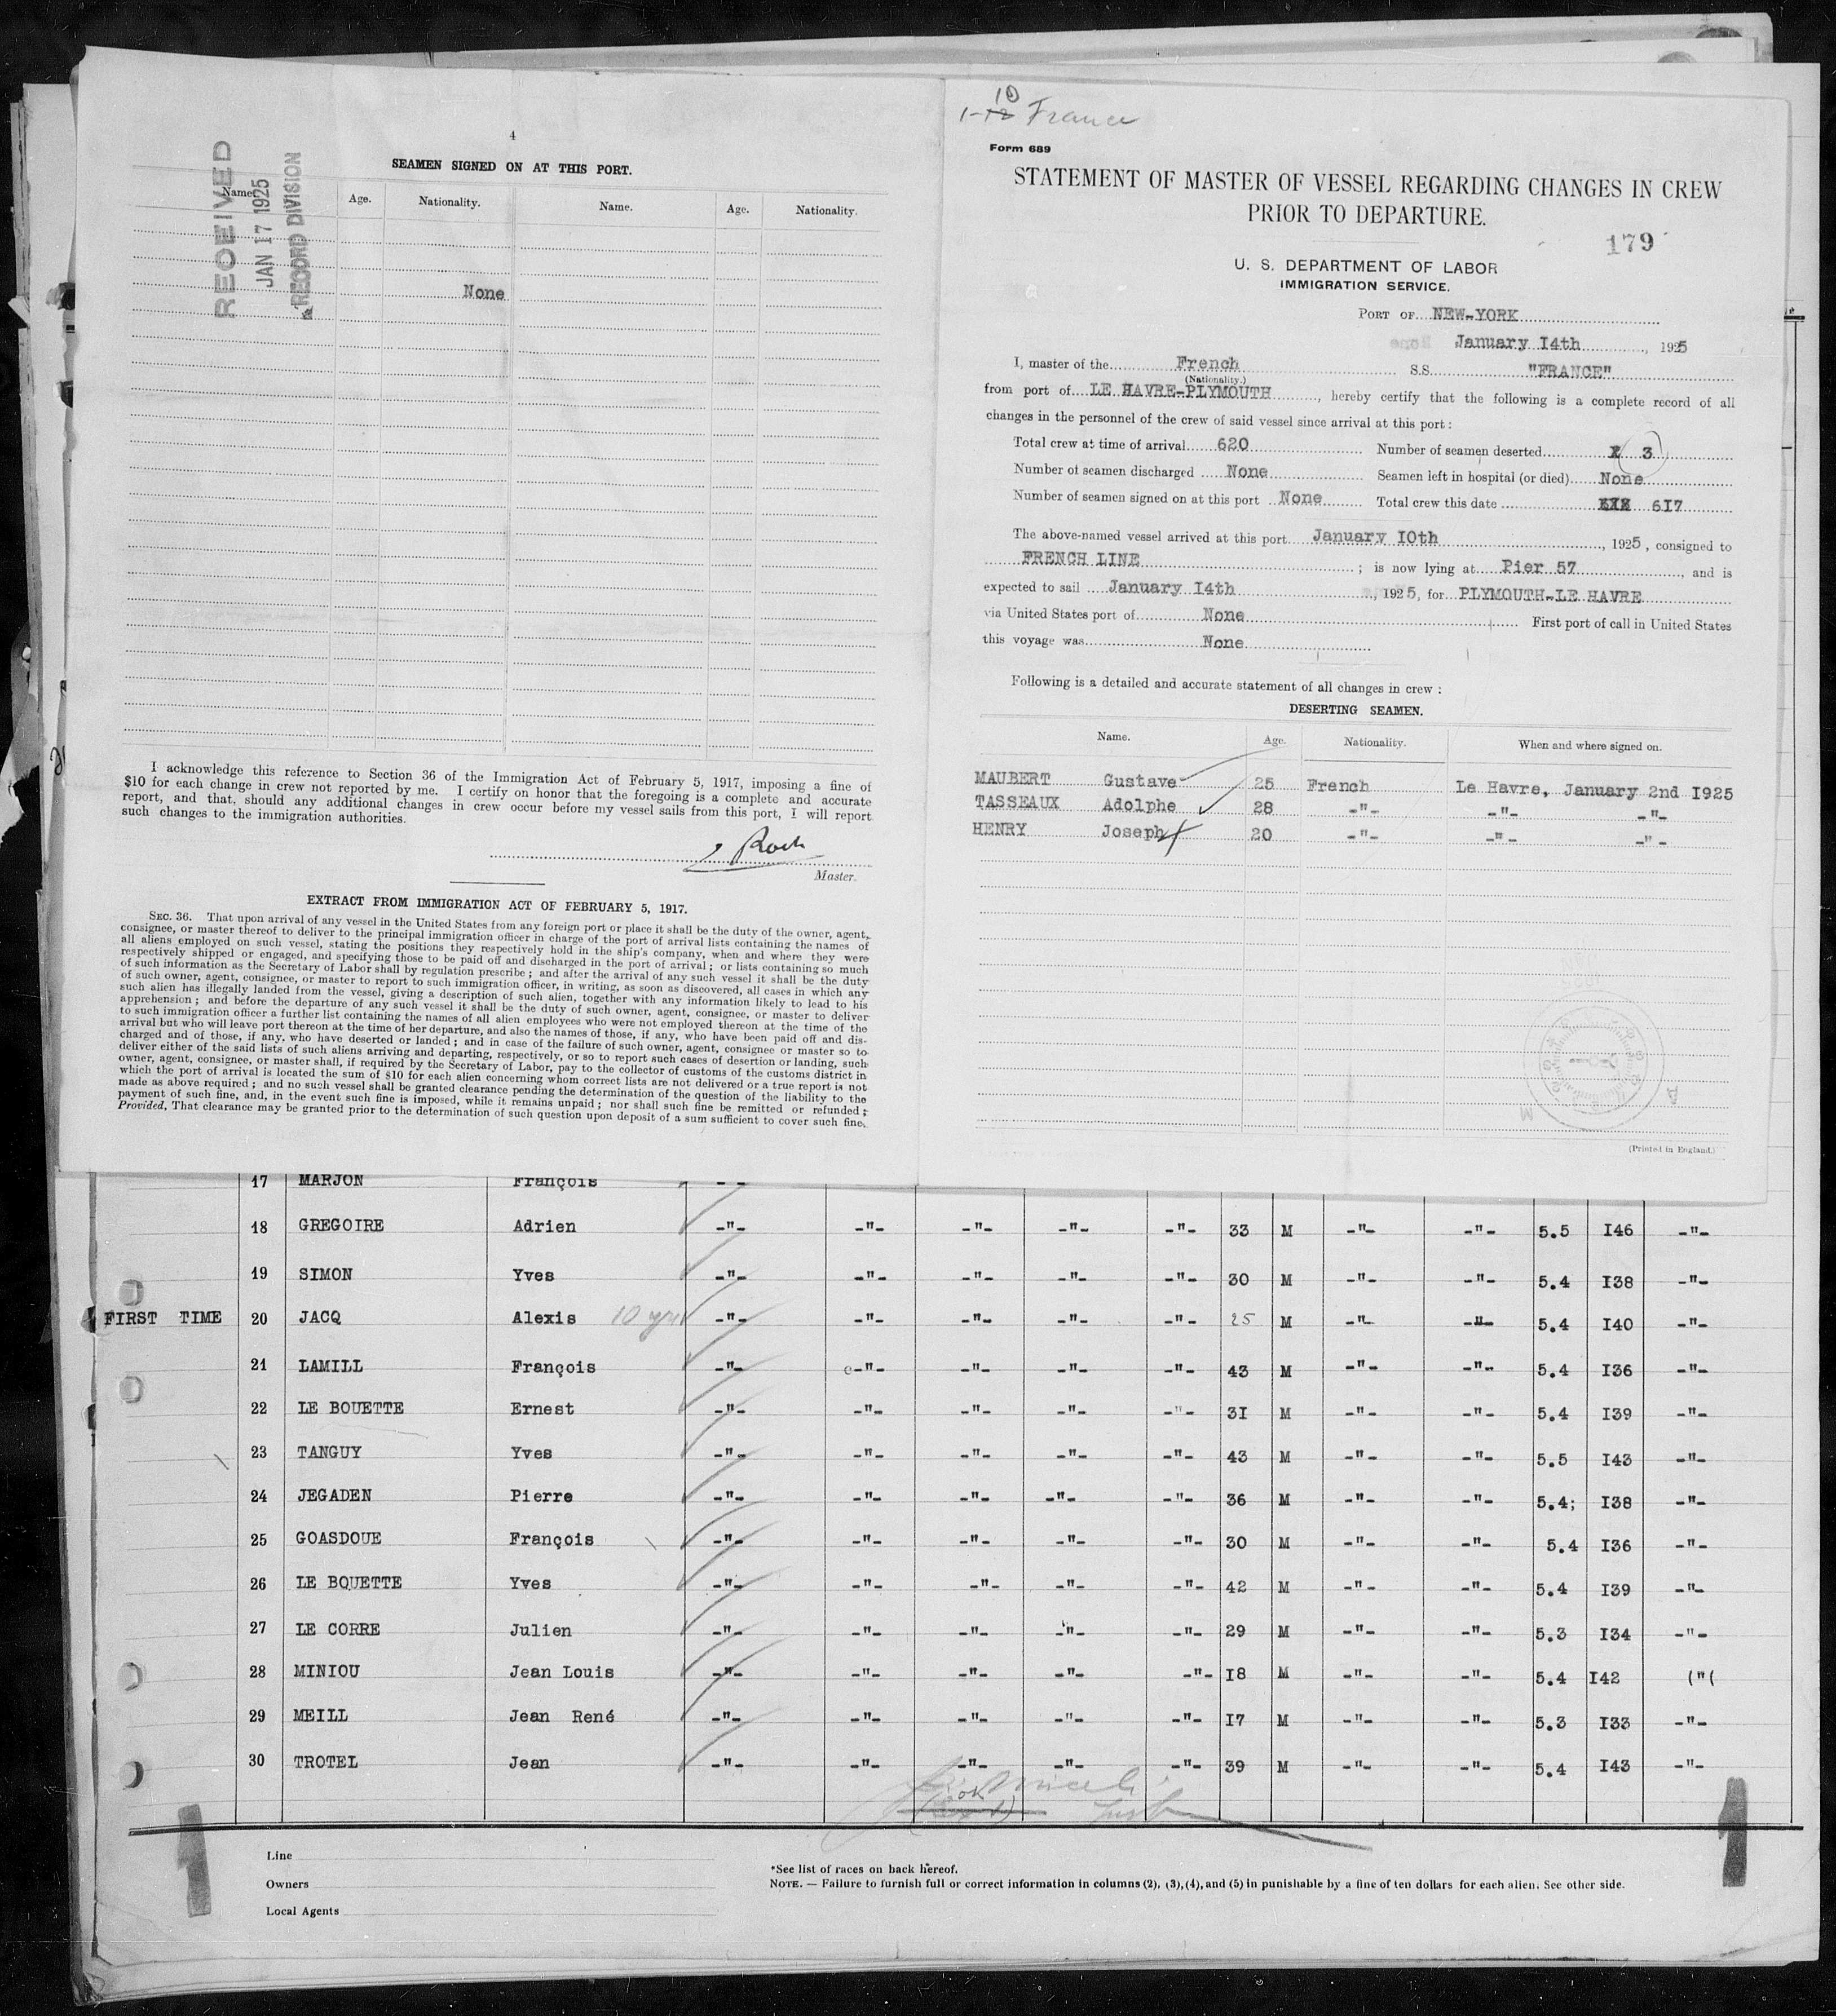 4
SEAMEN SIGNED ON AT THIS PORT.
RECEIVED
JAN 17 1925
RECORD DIVISION
Name. Age. Nationality. Name. Age. Nationality.
None
I acknowledge this reference to Section 36 of the Immigration Act of February 5, 1917, imposing a fine of
$10 for each change in crew not reported by me. I certify on honor that the foregoing is a complete and accurate
report, and that, should any additional changes in crew occur before my vessel sails from this port, I will report
such changes to the immigration authorities.
Roch
Master.
EXTRACT FROM IMMIGRATION ACT OF FEBRUARY 5, 1917.
SEC. 36. That upon arrival of any vessel in the United States from any foreign port or place it shall be the duty of the owner, agent,
consignee, or master thereof to deliver to the principal immigration officer in charge of the port of arrival lists containing the names of
all aliens employed on such vessel, stating the positions they respectively hold in the ship's company, when and where they were
respectively shipped or engaged, and specifying those to be paid off and discharged in the port of arrival; or lists containing so much
of such information as the Secretary of Labor shall by regulation prescribe; and after the arrival of any such vessel it shall be the duty
of such owner, agent, consignee, or master to report to such immigration officer, in writing, as soon as discovered, all cases in which any
such alien has illegally landed from the vessel, giving a description of such alien, together with any information likely to lead to his
apprehension; and before the departure of any such vessel it shall be the duty of such owner, agent, consignee, or master to deliver
to such immigration officer a further list containing the names of all alien employees who were not employed thereon at the time of the
arrival but who will leave port thereon at the time of her departure, and also the names of those, if any, who have been paid off and dis-
charged and of those, if any, who have deserted or landed; and in case of the failure of such owner, agent, consignee or master so to
deliver either of the said lists of such aliens arriving and departing, respectively, or so to report such cases of desertion or landing, such
owner, agent, consignee, or master shall, if required by the Secretary of Labor, pay to the collector of customs of the customs district in
which the port of arrival is located the sum of $10 for each alien concerning whom correct lists are not delivered or a true report is not
made as above required; and no such vessel shall be granted clearance pending the determination of the question of the liability to the
payment of such fine, and, in the event such fine is imposed, while it remains unpaid; nor shall such fine be remitted or refunded;
Provided, That clearance may be granted prior to the determination of such question upon deposit of a sum sufficient to cover such fine.
10
1-12 France
Form 689
STATEMENT OF MASTER OF VESSEL REGARDING CHANGES IN CREW
PRIOR TO DEPARTURE.
179
U. S. DEPARTMENT OF LABOR
IMMIGRATION SERVICE.
PORT OF NEW-YORK
January I4th, 1925
I, master of the French S.S. "FRANCE"
(Nationality.)
from port of LE HAVRE-PLYMOUTH, hereby certify that the following is a complete record of all
changes in the personnel of the crew of said vessel since arrival at this port:
Total crew at time of arrival 620 Number of seamen deserted 3
Number of seamen discharged None Seamen left in hospital (or died) None
Number of seamen signed on at this port None Total crew this date 6I7
The above-named vessel arrived at this port January I0th, 1925, consigned to
FRENCH LINE; is now lying at Pier 57, and is
expected to sail January I4th, 1925, for PLYMOUTH-LE HAVRE
via United States port of None First port of call in United States
this voyage was None
Following is a detailed and accurate statement of all changes in crew:
DESERTING SEAMEN.
Name. Age. Nationality. When and where signed on.
MAUBERT Gustave 25 French Le Havre, January 2nd I925
TASSEAUX Adolphe 28 -"- -"- -"-
HENRY Joseph 20 -"- -"- -"-
(Printed in England.)
17 MARJON François -"-
18 GREGOIRE Adrien -"- -"- -"- -"- -"- 33 M -"- -"- 5.5 I46 -"-
19 SIMON Yves -"- -"- -"- -"- -"- 30 M -"- -"- 5.4 I38 -"-
FIRST TIME 20 JACQ Alexis 10 yrs -"- -"- -"- -"- -"- 25 M -"- -"- 5.4 I40 -"-
21 LAMILL François -"- -"- -"- -"- -"- 43 M -"- -"- 5.4 I36 -"-
22 LE BOUETTE Ernest -"- -"- -"- -"- -"- 3I M -"- -"- 5.4 I39 -"-
23 TANGUY Yves -"- -"- -"- -"- -"- 43 M -"- -"- 5.5 I43 -"-
24 JEGADEN Pierre -"- -"- -"- -"- -"- 36 M -"- -"- 5.4; I38 -"-
25 GOASDOUE François -"- -"- -"- -"- -"- 30 M -"- -"- 5.4 I36 -"-
26 LE BOUETTE Yves -"- -"- -"- -"- -"- 42 M -"- -"- 5.4 I39 -"-
27 LE CORRE Julien -"- -"- -"- -"- -"- 29 M -"- -"- 5.3 I34 -"-
28 MINIOU Jean Louis -"- -"- -"- -"- -"- I8 M -"- -"- 5.4 I42 ("(
29 MEILL Jean René -"- -"- -"- -"- -"- I7 M -"- -"- 5.3 I33 -"-
30 TROTEL Jean -"- -"- -"- -"- -"- 39 M -"- -"- 5.4 I43 -"-
ok
1 1
Line
Owners
Local Agents
*See list of races on back hereof.
NOTE. — Failure to furnish full or correct information in columns (2), (3), (4), and (5) in punishable by a fine of ten dollars for each alien. See other side.